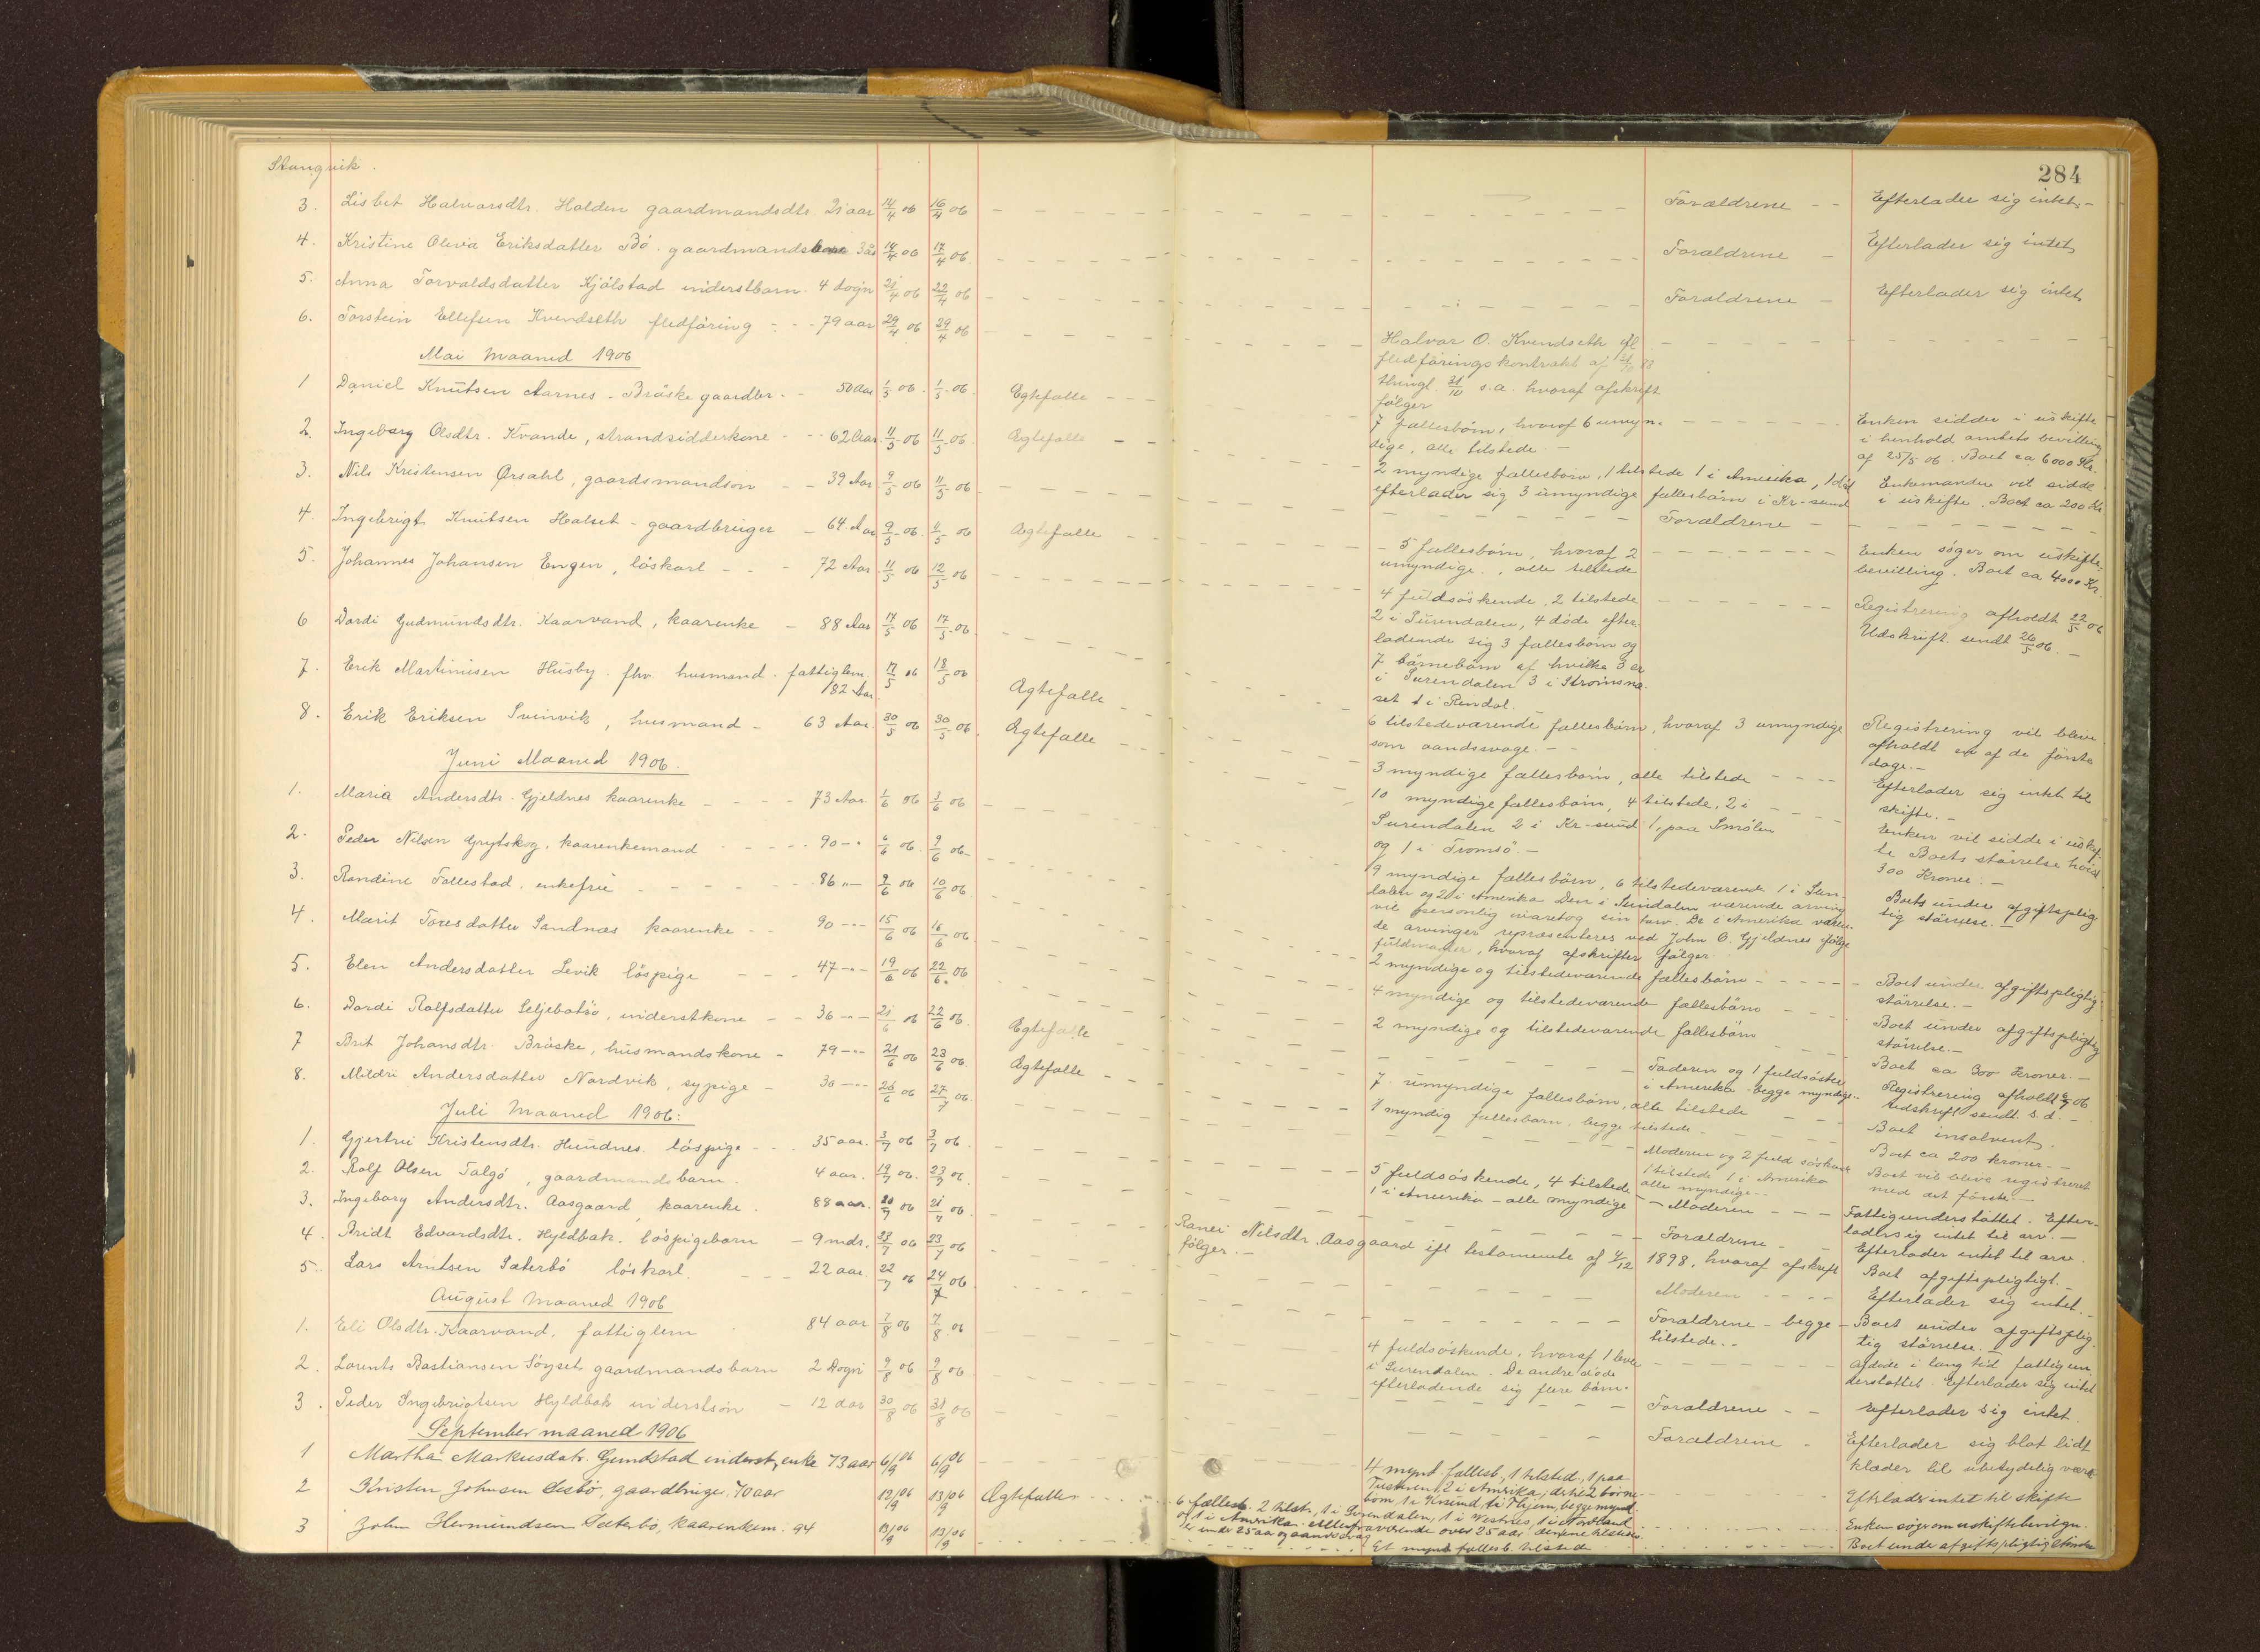 Stangvik.
284
3. Lisbet Halvarsdtr. Halden gaardmandsdtr 21 aar 14/4 06 16/4 06
4. Kristine Olivia Eriksdatter Bö. gaardmands 14/4 06 17/4 06
5. Anna Torvaldsdatter Kjölstad inderstbarn 4 dogn 21/4 06 22/4 06
6. Torstein Ellefsen Kvendseth fledföring - - - 79 aar 29/4 06 29/4 06
Mai Maaned 1906
1 Daniel Knutsen Aarnes - Bräske gaardbr. - 50 Aar 1/5 06 1/5 06 Egtefalle
2. Ingeborg Olsdtr. Kvande, strandsidderkone - - 62 Aar 11/5 06 11/5 06 Ægtefalle
3. Nils Kristensen Ørsahl, gaardsmandson - - 39 Aar 9/5 06 11/5 06
4. Ingebrigt Knutsen Halset - gaardbruger - 64 Aar 9/5 06 11/5 06 Ægtefalle
5. Johannes Johansen Engen, löskarl - - - 72 Aar 11/5 06 12/5 06
6 Dordi Gudmundsdtr. Kaarvand, kaarenke - 88 Aar 17/5 06 17/5 06
7. Erik Martinusen Husby. fhv. husmand. fattiglem. 17/5 06 18/5 06
82 Aar. Ægtefalle
8. Erik Eriksen Svinvik, husmand - 63 Aar 30/5 06 30/5 06 Ægtefalle
Juni Maaned 1906.
1. Maria Andersdtr. Gjeldnes kaarenke - - - 73 Aar 1/6 06 3/6 06
2. Peder Nilsen Grytskog, kaarenkemand - - - 90 - " 6/6 06 9/6 06
3. Randine Tallestad, enkefru - - - 86 " - 9/6 06 10/6 06
4. Marit Toresdatter Sandnæs kaarenke - - 90 - " - 15/6 06 16/6 06
5. Elen Andersdatter Levik löspige - - - 47 - " - 19/6 06 22/6 06
6. Dordi Rolfsdatter Seljebotsö, inderstkone - - 36 - " - 21/6 06 22/6 06 Egtefalle
7 Brit Johansdtr. Bräske, husmandskone - 79 - " - 21/6 06 23/6 06 Ægtefalle
8. Mildri Andersdatter Nordvik, sypige - 30 - " - 26/6 06 27/7 06
Juli Maaned 1906:
1. Gjertrue Kristensdtr. Hundnes. löspige - - 35 aar. 3/7 06 3/7 06
2. Rolf Olsen Talgö, gaardmandsbarn. 4 aar. 19/7 06. 23/7 06
3. Ingeborg Andersdtr. Aasgaard kaarenke. 88 aar. 20/7 06 21/7 06
4. Bridt Edvardsdtr. Hyldbak. löspigebarn - 9 mdr. 23/7 06 23/7 06
5. Lars Arntsen Sæterbö löskarl - - - 22 aar. 22/7 06 24/7 06
August Maaned 1906
1. Eli Olsdtr. Kaarvand, fattiglem 84 aar 7/8 06 7/8 06
2. Lorents Bastiansen Söyset gaardmandsbarn 2 Dogn 9/8 06 9/8 06
3. Peder Ingebrigtsen Hyldbak inderstsön - 12 aar 30/8 06 31/8 06
September maaned 1906
1 Martha Markusdatr. Gundstad inderst, enke 73 aar 6/9 06 6/9 06
2 Kristen Johnsen Sesbö, gaardbruger, 70 aar 12/9 06 13/9 06 Ægtefalle
3 John Hermundsen Sæterbö, kaarenkem. 94 13/9 06 13/9 06
Forældrene - - Efterlader sig intet -
Forældrene - Efterlader sig intet
Forældrene - Efterlader sig intet
Halvar O. Kvendseth ifl.
fledföringskontrakt af
thingl. 31/10 s.a. hvoraf afskrift
følger
7 fællesbörn, hvoraf 6 umyn-
dige, alle tilstede. -
Enken sidder i uskifte
i henhold amtets bevilling
af 25/5 06. Boet ca 6000 Kr.
2 myndige fællesbörn, 1 tilstede 1 i Amerika, 1 död
efterlader sig 3 umyndige fællesbörn i Kr-sund
Enkemanden vil sidde
i uskifte. Boet ca 200 Kr
Forældrene -
- 5 fællesbörn, hvoraf 2
umyndige., alle tilstede
Enken söger om uskifte-
bevilling. Boet ca 4000 Kr.
4 fuldsöskende, 2 tilstede
2 i Surendalen, 4 döde efter-
ladende sig 3 fællesbörn og
7 börnebörn af hvilke 3 er
i Surendalen 3 i Strömsnæ-
set 1 i Rindal.
Registrering afholdt 22/5 06
Udskrift sendt 26/5 06. -
6 tilstedeværende fællesbörn, hvoraf 3 umyndige
som aandssvage. -
Registrering vil blive
afholdt en af de förste
dage. -
3 myndige fællesbörn, alle tilstede - - - -
Efterlader sig intet til
skifte. -
10 myndige fællesbörn, 4 tilstede, 2 i -
Surendalen 2 i Kr-sund 1, paa Smölen
og 1 i Tromsö. -
Enken vil sidde i uskif-
te Boets störrelse
300 Kroner. -
9 myndige fællesbörn, 6 tilstedeværende 1 i Sun-
dalen og 2 i Amerika Den i Sundalen værende arving
vil personlig varetag sin tarv. De i Amerika væren-
de arvinger repræsenteres ved John O. Gjeldnes ifölge
fuldmagter, hvoraf afskrifter fölger
Boets under afgiftsplig
tig störrelse. -
2 myndige og tilstedeværende fællesbörn - - - - -
Boet under afgiftspligtig
störrelse. -
4 myndige og tilstedeværende fællesbörn - - -
Boet under afgiftspligtig
störrelse. -
2 myndige og tilstedeværende fællesbörn
Boet ca 300 Kroner. -
Faderen og 1 fuldsöster
i Amerika - begge myndige.
Registrering afholdt 06
Udskrift sendt s.d. -
7 umyndige fællesbörn, alle tilstede
Boet insolvent.
1 myndig fællesbarn, begge tilstede -
Boet ca 200 kroner. -
Moderen og 2 fuld söskende
1 tilstede 1 i Amerika
alle myndige - -
Boet vil blive registreret
med det förste -
5 fuldsöskende, 4 tilstede
1 i Amerika - alle myndige - Moderen - - -
Fattigunderstöttet. Efter-
lader sig intet til arv. -
Forældrene -
Efterlader intet til arv.
Ranei Nilsdtr. Aasgaard ifl testamente af 4/12 1898, hvoraf afskrift
fölger. -
Boet afgiftspligtigt. -
Moderen - - - -
Efterlader sig intet. -
Forældrene - begge -
tilstede. -
Boet under afgiftsplig
tig störrelse. -
4 fuldsöskende, hvoraf 1 lever
i Surendalen. De andre döde
efterladende sig flere börn.
Afdöde i lang tid fattigun
derstöttet. Efterlader sig intet
Forældrene - - Efterlader sig intet.
Forældrene - Efterlader sig blot lidt
klæder til ubetydelig værdi
4 mynd. fællesb., 1 tilsted, 1 paa
Tustern, 2 i Amerika, dertil 2 börne-
börn, 1 i Krsund 1 i Thjem, begge mynd.
Efterlader intet til skifte
6 fællesb. 2 tilst., 1 i Surendalen, 1 i Vestnes, 1 i Nordland
og 1 i Amerika. Alle fraværende over 25 aar. den ene tilstede
er under 25 aar og aandssvag
Enken söger om uskiftebevilgn.
Et mynd fællesb. tilstede
Boet under afgiftspligtig